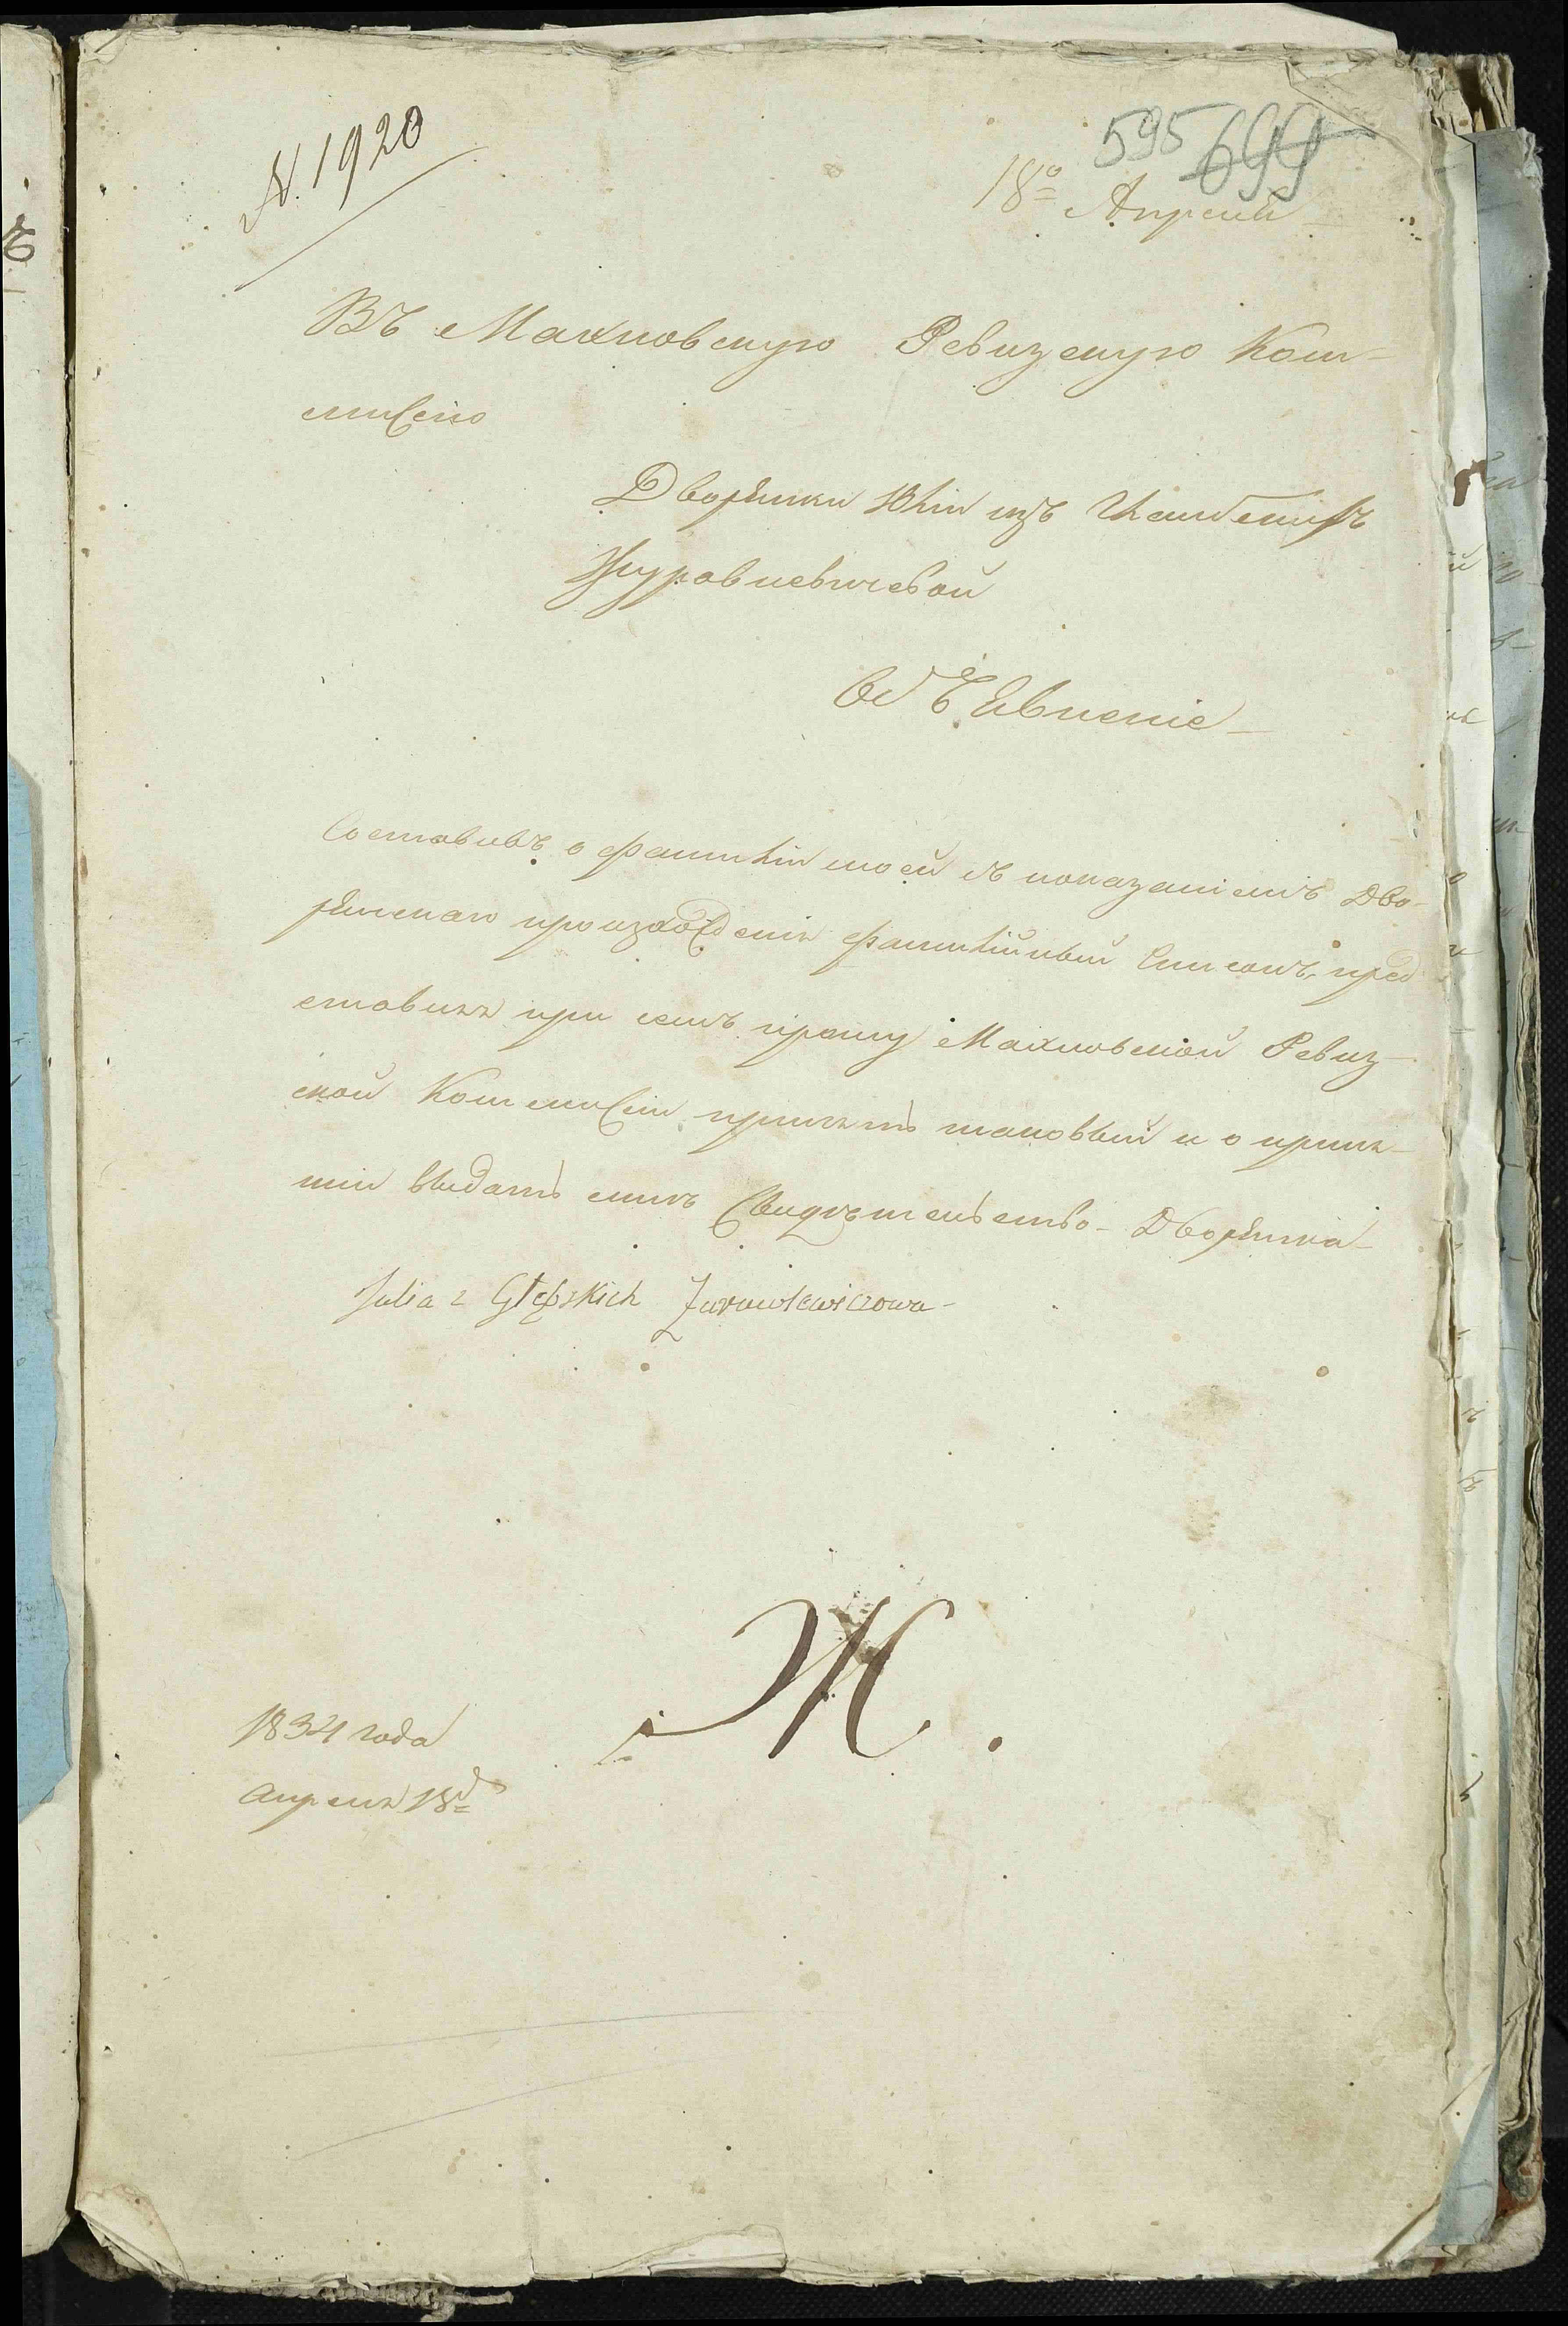 N. 1920
595 699
18го Апреля
Въ Махновскую Ревизскую Ком-
миссію
Дворянки Юлiи изъ
Журавлевичевой
Объявленіе
Составивъ о фамиліи моей съ показаніемъ Дво-
рянскаго произхожденія фамилійный Списокъ, пред
ставляя при семъ прошу Махновской Ревиз-
ской Коммиссіи принять таковый и о приня-
тіи выдать мнѣ Свидѣтельство - Дворянка
Julia z Głębskich Żurawlewiczowa -
Ж.
1834 года
Апреля 18д